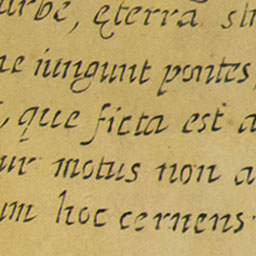 urbe, & terra
ne iungunt pontes,
, que ficta est a
ur motus non a
um hoc cernens